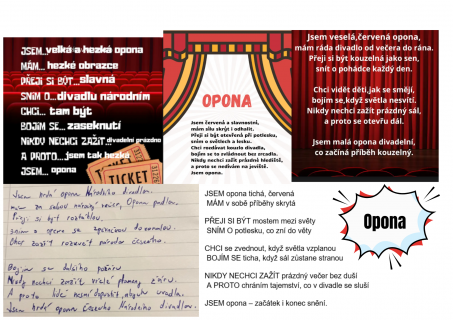 JSEM...velká a hezká opona
MÁM...hezké obrazce
PŘEJI SI BÝT...slavná
SNÍM O...divadlu národním
CHCI... tam být
BOJÍM SE...zaseknutí
NIKDY NECHCI ZAŽÍT...divadelní prázdno
A PROTO...jsem tak hezká
JSEM... opona
TICKET
OPONA
Jsem červená a slavnostní,
mám sílu skrýt i odhalit.
Přeji si být otevřená při potlesku,
sním o světlech a lesku.
Chci rozdávat kouzlo divadla,
bojím se to zvládnout bez zrcadla.
Nikdy nechci zažít prázdné hlediště,
a proto se nedívám na jeviště.
Jsem opona.
Jsem veselá,červená opona,
mám ráda divadlo od večera do rána.
Přeji si být kouzelná jako sen,
snít o pohádce každý den.
Chci vidět děti,jak se smějí,
bojím se,když světla nesvítí.
Nikdy nechci zažít prázdný sál,
a proto se otevřu dál.
Jsem malá opona divadelní,
co začíná příběh kouzelný.
Jsem hrdá opona Národního divadla.
Přeji si být roztáhlou.
Chci zažít
Bojím se dalšího požáru
Nikdy nechci zažít
A proto lidé nesmí dopustit, abych uvadla.
Jsem hrdá opona Českého Národního divadla.
JSEM opona tichá, červená
MÁM v sobě příběhy skrytá
PŘEJI SI BÝT mostem mezi světy
SNÍM O potlesku, co zní do věty
CHCI se zvednout, když světla vzplanou
BOJÍM SE ticha, když sál zůstane stranou
NIKDY NECHCI ZAŽÍT prázdný večer bez duší
A PROTO chráním tajemství, co v divadle se sluší
JSEM opona – začátek i konec snění.
Opona